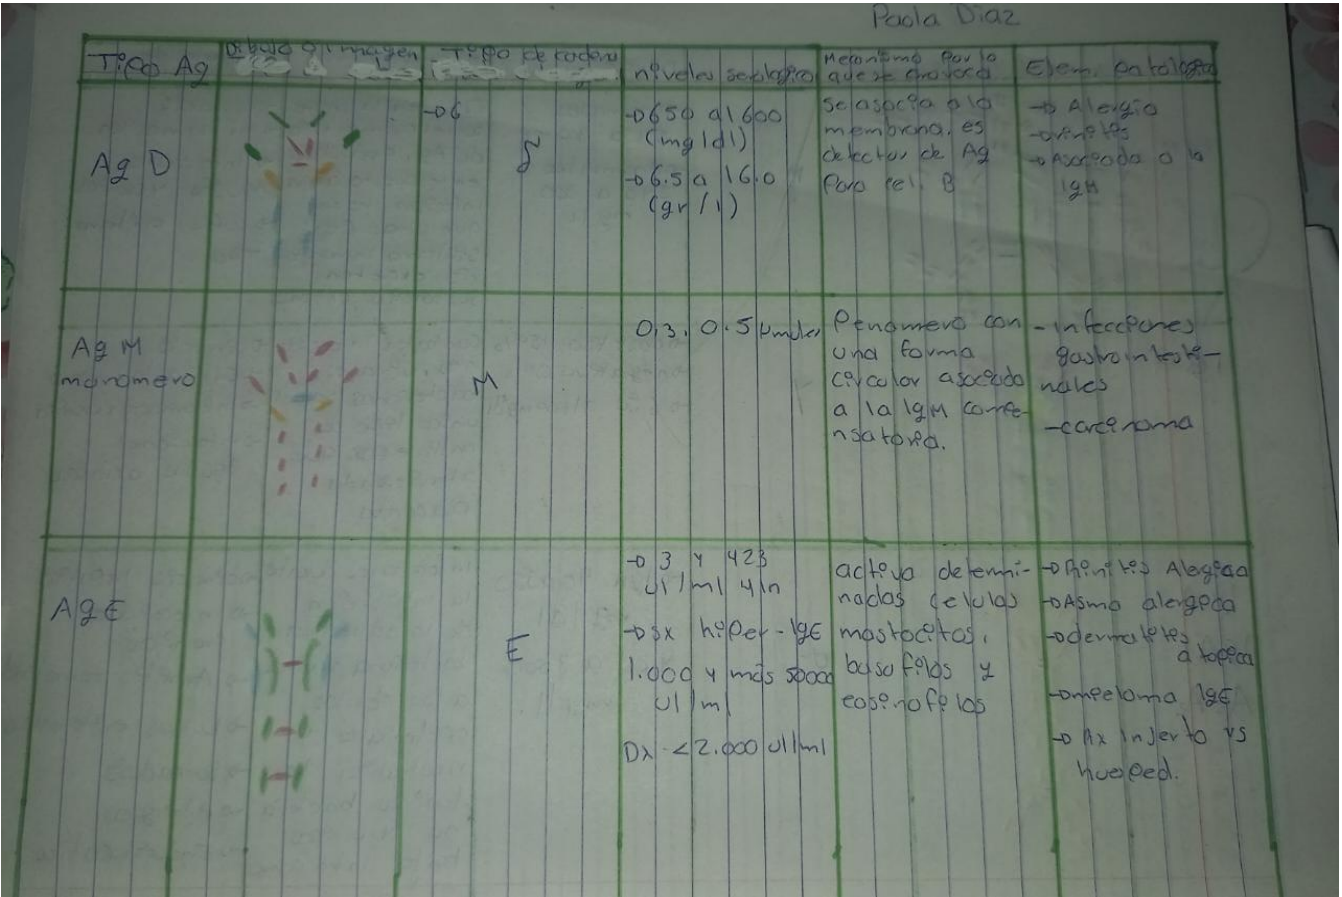 Paola Diaz
Tipo Ag
Dibujo o imagen
Tipo de cadena
niveles
Mecanismo por lo
que se provoca
Ejem. patología
Ag D
δ
→650 a 1600
(mg/dl)
→6.5 a 16.0
(gr/l)
se asocia a la
membrana, es
detector de Ag
para cel. B
→ Alergia
→ Asociada a la
IgM
Ag M
monomero
M
0.3. 0.5
Penamero con
una forma
circular asociado
a la IgM
-infecciones
gastrointesti-
nales
-carcinoma
AgE
E
→ 3 y 423
UI/ml
→sx hiper-IgE
1.000 y más 5000
UI/ml
Dx <2.000 UI/ml
activa determi-
nadas celulas
mastocitos,
basofilos y
eosinofilos
→Rinitis Alergica
→Asma alergica
→dermatites
atopica
→mieloma IgE
→ Ax injerto vs
huesped.